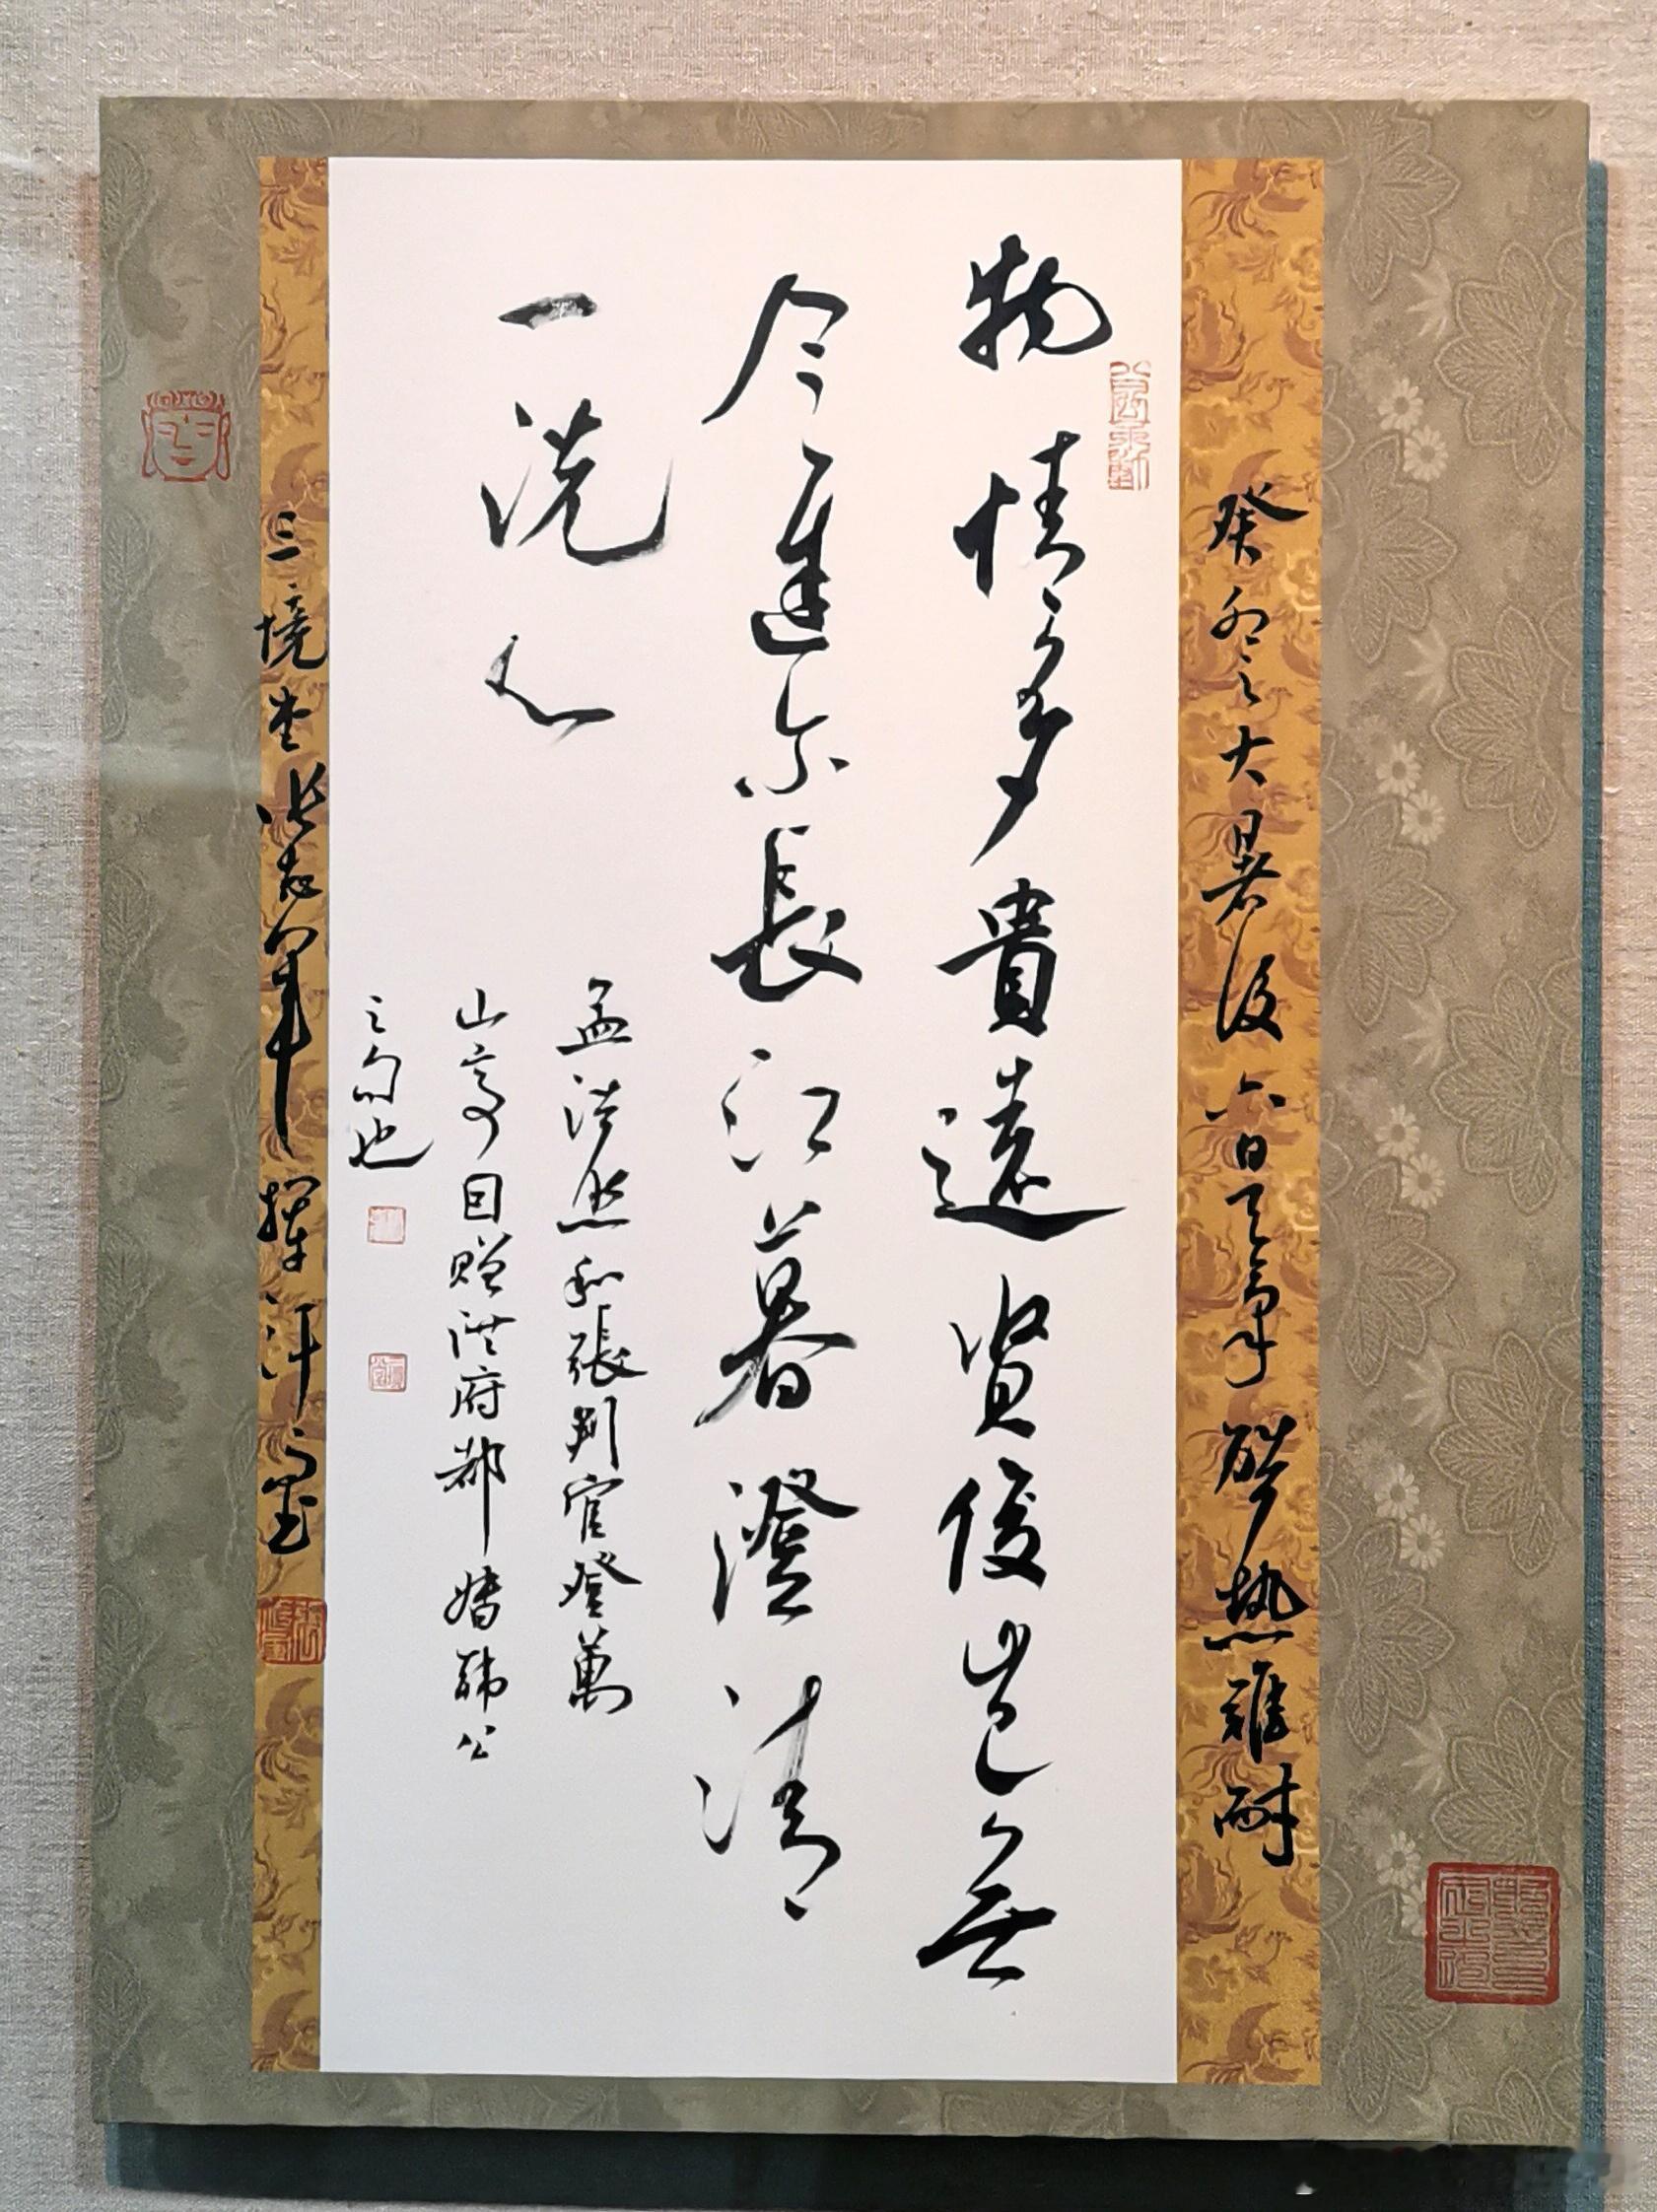 癸卯之大暑後六日天氣酷熱難耐
物情多貴遠賢俊豈無
今遲尔長江暮澄清
一洗心
孟浩然和張判官登萬
山亭因贈洪府都督韓公
之句也
三境堂 揮汗之墨